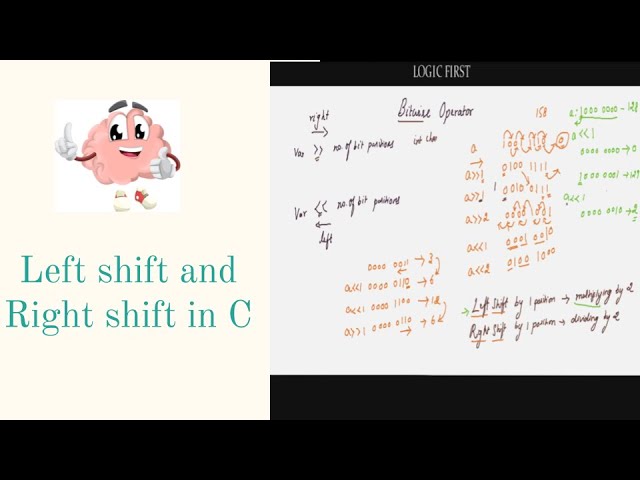 LOGIC FIRST
Left shift and
Right shift in C
right
Bitwise Operator
158
Var >> no. of bit positions int char
Var << no. of bit positions
left
0000 0011 → 3
a<<1 0000 0110 → 6
a<<1 0000 1100 → 12
a>>1 0000 0110 → 6
a
a>>1 0100 1111
a>>1 0010 0111
a>>2
a<<1 0001 0010
a<<2 0100 1000
a 1000 0000 - 128
a<<1
0000 0000 → 0
1000 0001 → 129
a<<1
0000 0010 → 2
→ Left Shift by 1 position → multiplying by 2
Right Shift by 1 position → dividing by 2